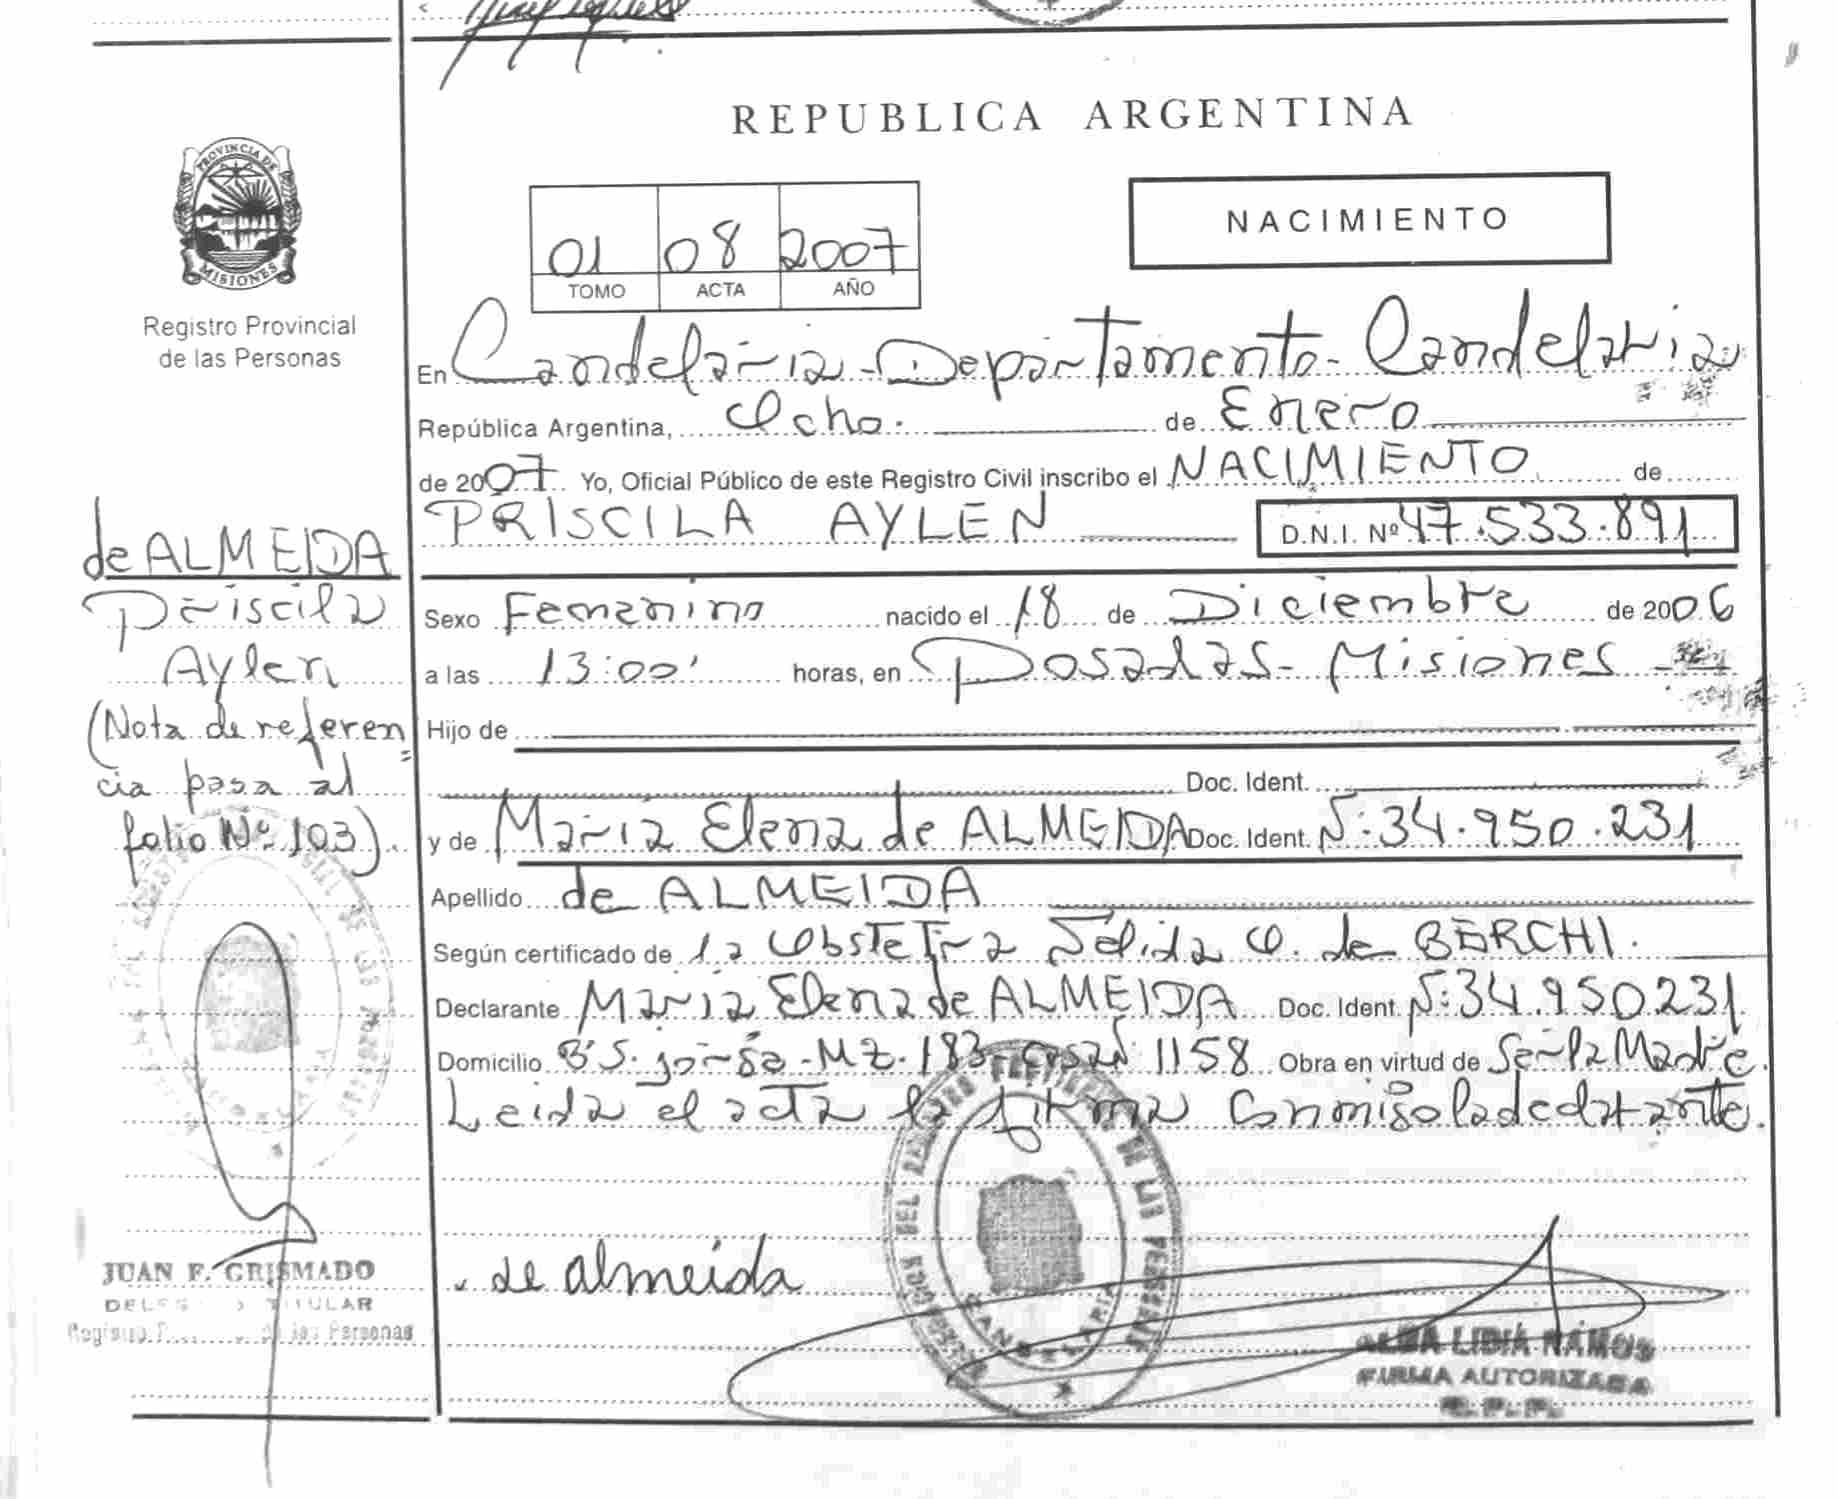 REPUBLICA ARGENTINA
PROVINCIA DE
MISIONES
Registro Provincial
de las Personas
01 08 2007
TOMO ACTA AÑO
NACIMIENTO
En Candelaria - Departamento - Candelaria
República Argentina, Ocho. de Enero
de 2007 Yo, Oficial Público de este Registro Civil inscribo el NACIMIENTO de
PRISCILA AYLEN D.N.I. Nº 47.533.891
de ALMEIDA
Priscila
Aylen
(Nota de referen
cia pasa al
folio Nº 103).
Sexo Femenino nacido el 18 de Diciembre de 2006
a las 13:00' horas, en Posadas - Misiones
Hijo de
Doc. Ident.
y de María Elena de ALMEIDA Doc. Ident. N: 34.950.231
Apellido de ALMEIDA
Según certificado de la Obstetra Nélida O. de BERCHI.
Declarante María Elena de ALMEIDA Doc. Ident. N: 34.950.231
Domicilio Bº S. Jorge - MZ. 183 - casa N: 1158 Obra en virtud de Ser la Madre.
Leida el acta la firma conmigo la declarante.
de almeida
CANDELARIA
JUAN F. GRISMADO
TITULAR
de las Personas
ALBA LIDIA RAMOS
FIRMA AUTORIZADA
R.P.P.